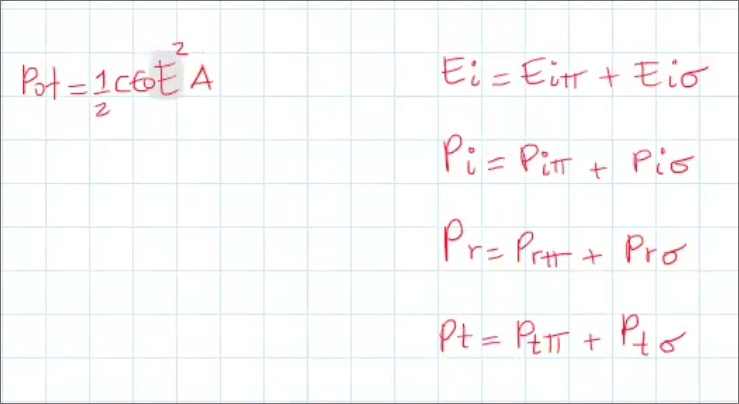 Pot = 1/2 cε0E² A
Ei = Eiπ + Eiσ
Pi = Piπ + Piσ
Pr = Prπ + Prσ
Pt = Ptπ + Ptσ